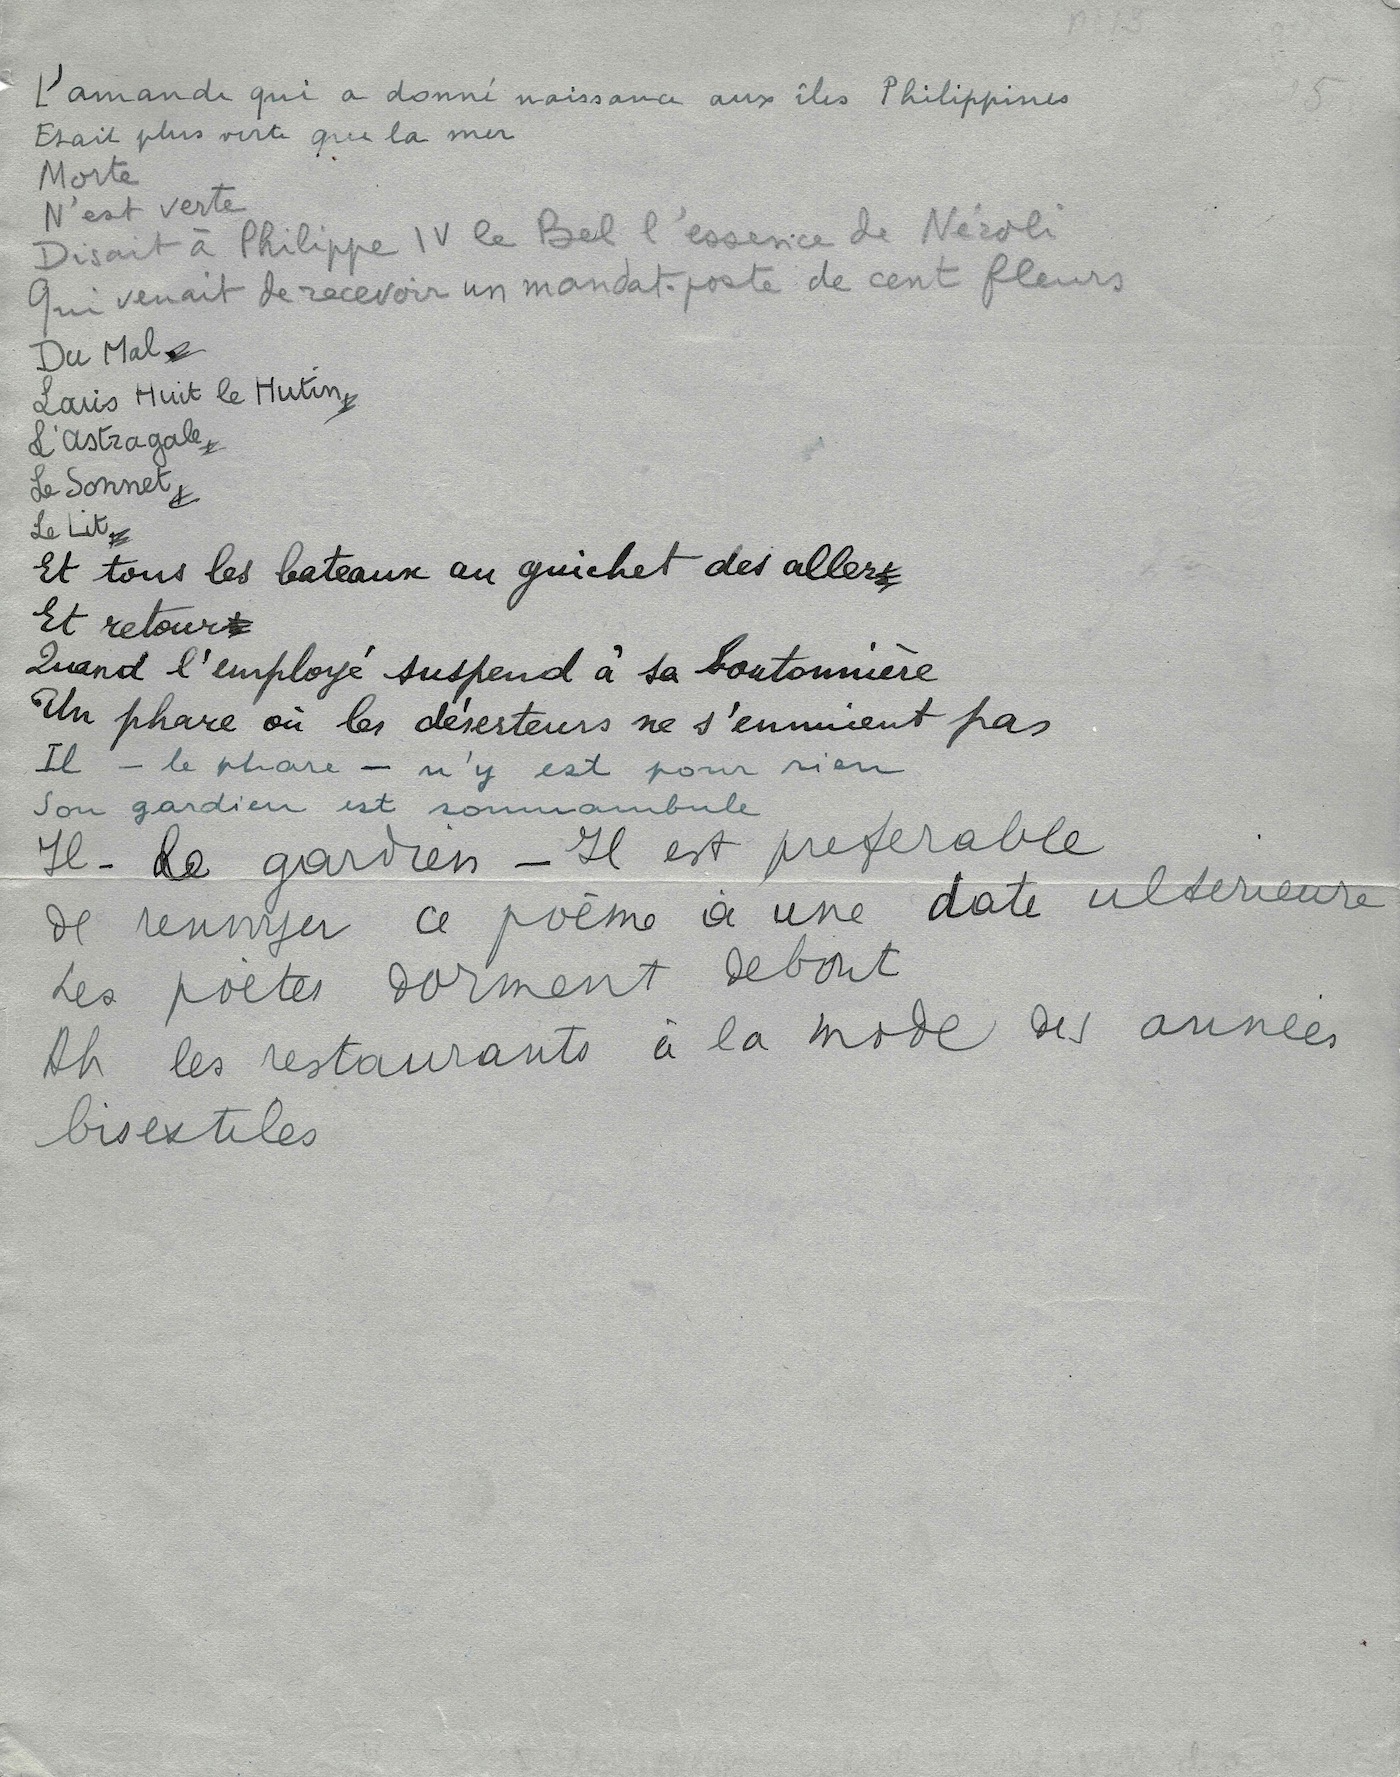 L'amande qui a donné naissance aux îles Philippines
Etait plus verte que la mer
Morte
N'est verte
Disait à Philippe IV le Bel l'essence de Néroli
Qui venait de recevoir un mandat-poste de cent fleurs
Du Mal
Louis Huit le Hutin
L'Astragale
Le Sonnet
Le Lit
Et tous les bateaux au guichet des aller
Et retour
Quand l'employé suspend à sa boutonnière
Un phare où les déserteurs ne s'ennuient pas
Il – le phare – n'y est pour rien
Son gardien est somnambule
Il – Le gardien – Il est preferable
de renvoyer ce poème à une date ulterieure
Les poètes dorment debout
Ah les restaurants à la mode des années
bisextiles